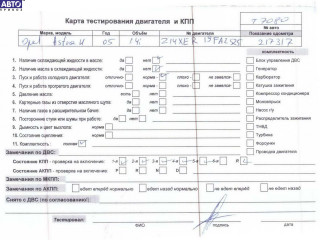 АВТО ПРИЗ
Карта тестирования двигателя и КПП
Т 7080
Марка, модель Год Объём № двигателя Показания одометра
Opel Astra H 05 1.4 Z14XEP 19FA2528 217317
комплектность
1. Наличие охлаждающей жидкости в масле: да нет
2. Наличие масла в охлаждающей жидкости: да нет
3. Пуск и работа холодного двигателя: отлично норма плохо не завелся
4. Пуск и работа прогретого двигателя: отлично норма плохо не завелся
5. Давление масла: норма
6. Картерные газы из отверстия масляного щупа: да нет
7. Наличие газов в расширительном бачке: да нет
8. Посторонние стуки или шумы при работе: да нет
9. Дымность и цвет выхлопа:
10. Состояние:
11. Комплектность: полная
Блок управления ДВС
Стартер
Карбюратор
Катушка зажигания
Компрессор кондиционера
Моновпрыск
Насос г/у
Распределитель зажигания
ТНВД
Турбина
Форсунки
Проводка двигателя
Замечания по ДВС:
Состояние КПП - проверка на включение: 1-я 2-я 3-я 4-я 5-я 6-я R
Состояние АКПП - проверка на включение: P R N D
Замечания по МКПП:
Замечания по АКПП: едет вперёд нормально едет назад нормально не едет вперёд не едет назад
Снято с ДВС (по согласованию):
Тестировал:
ФИО подпись дата